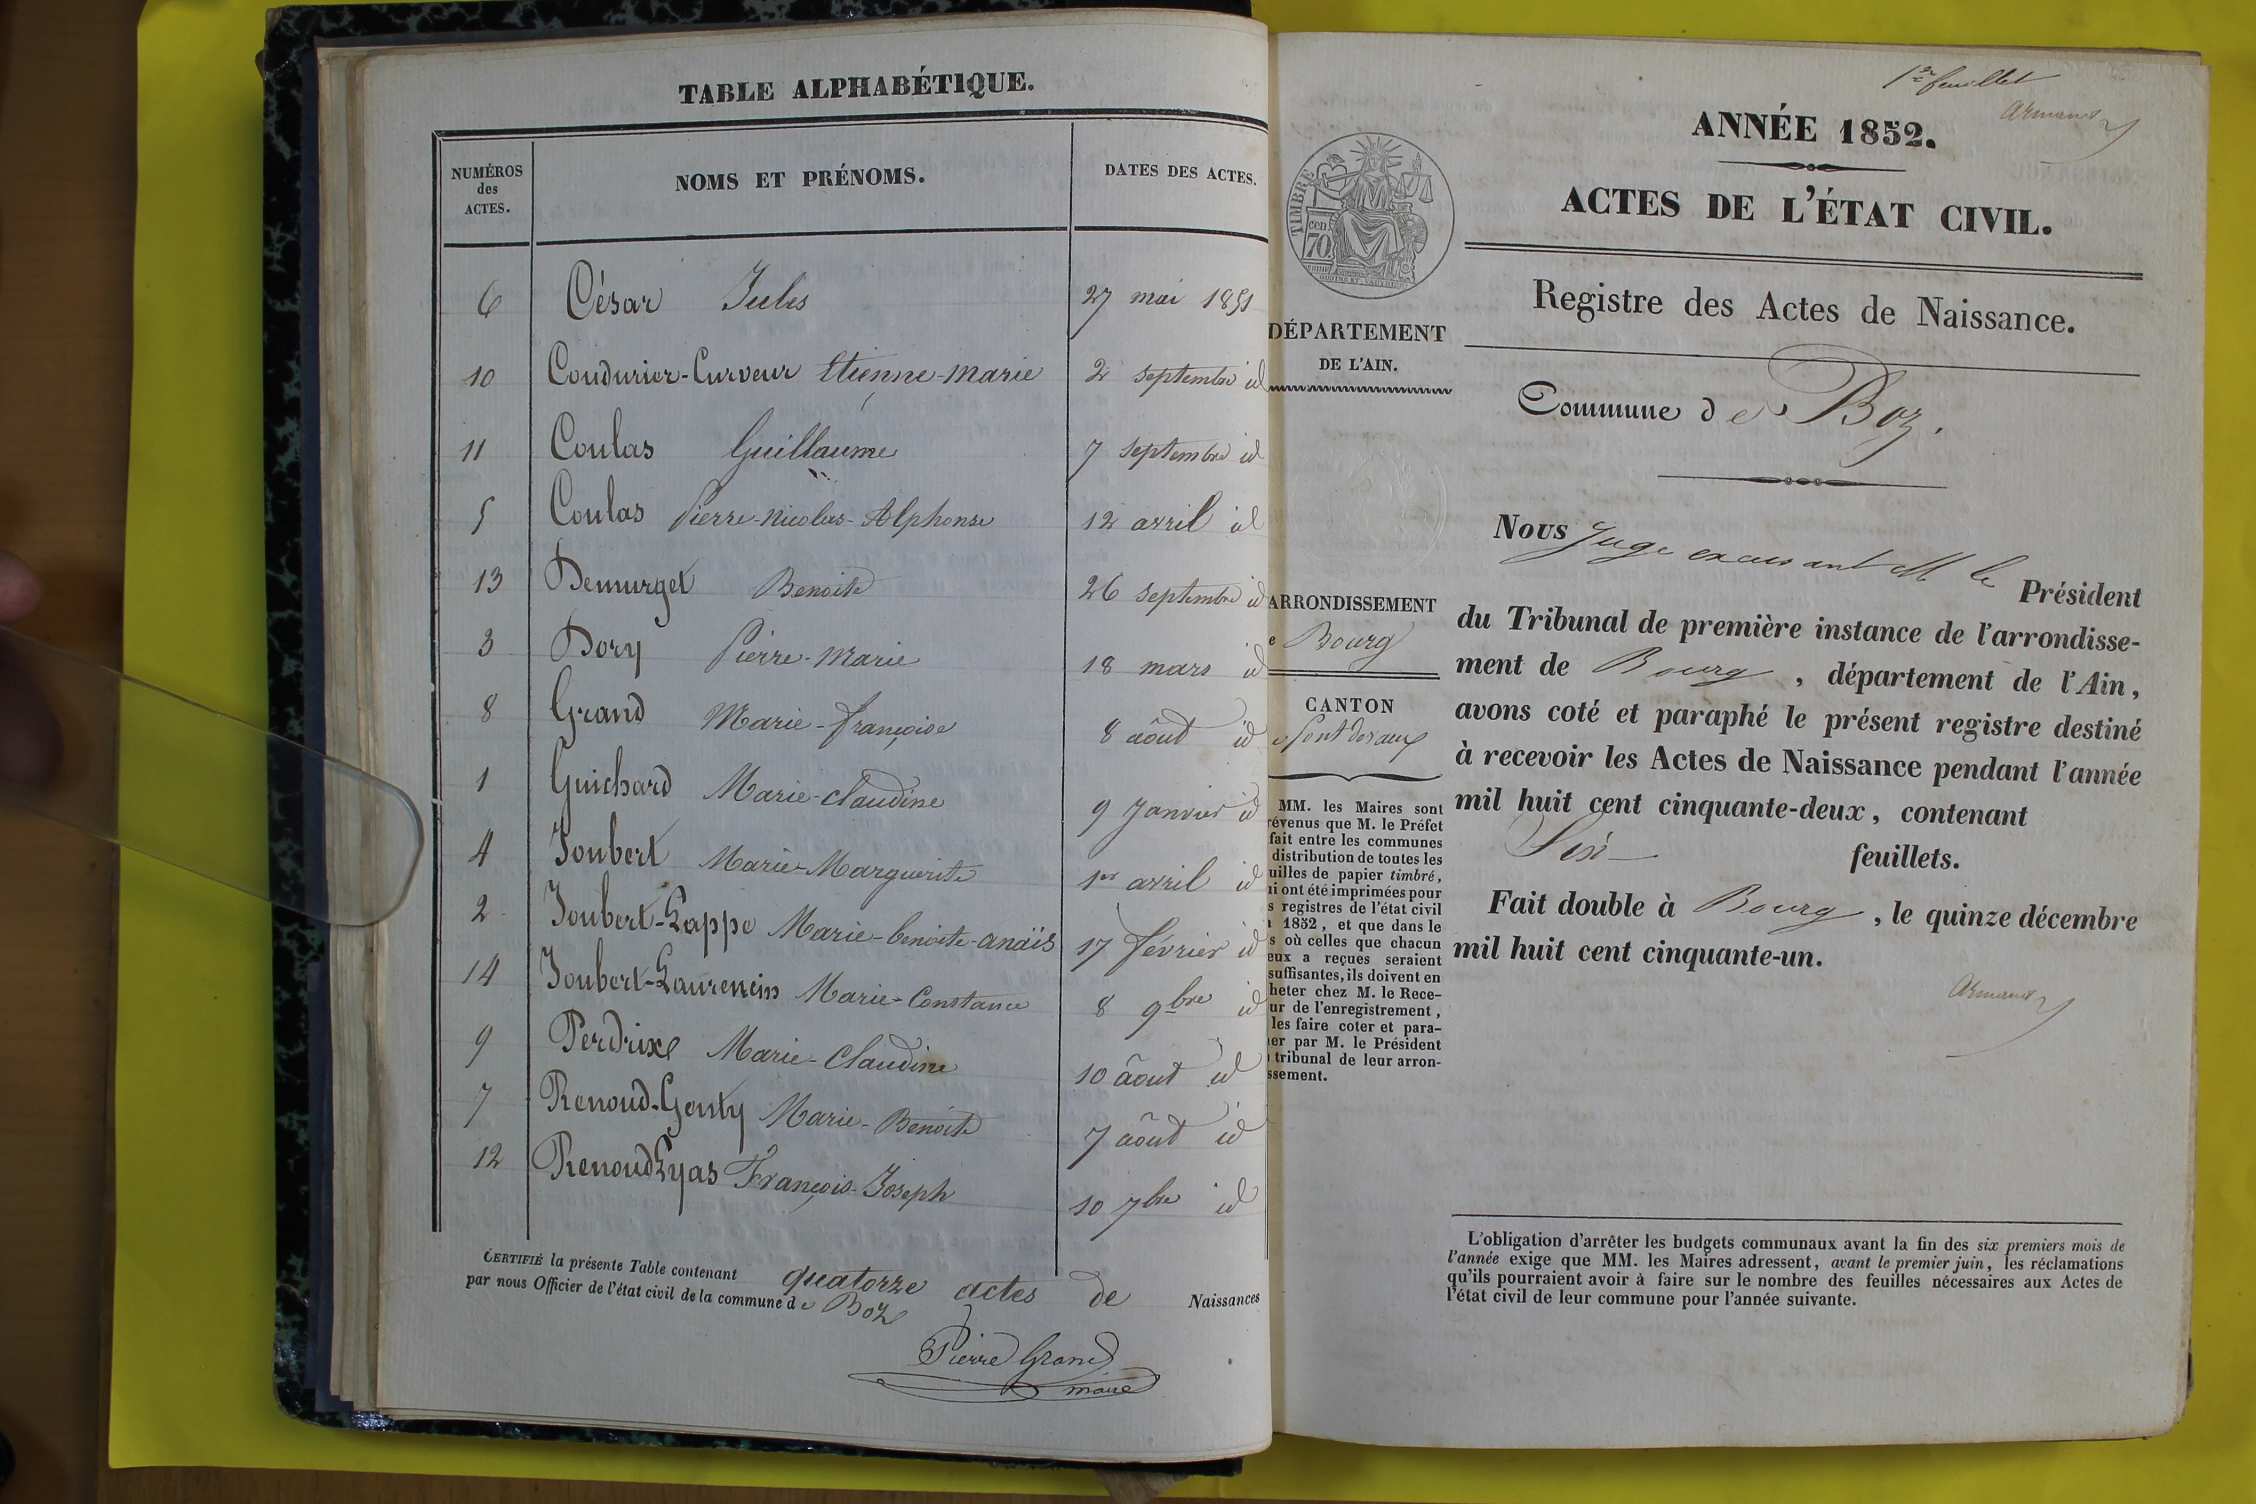 TABLE ALPHABÉTIQUE.
NUMÉROS
des
ACTES.
NOMS ET PRÉNOMS.
DATES DES ACTES.
6 César Jules 27 mai 1851
10 Coudurier-Curveur Etienne-Marie 2 septembre id
11 Coulas Guillaume 7 septembre id
5 Coulas Pierre-Nicolas-Alphonse 12 avril id
13 Demurget Benoite 26 septembre id
3 Dory Pierre-Marie 18 mars id
8 Grand Marie-françoise 8 août id
1 Guichard Marie-claudine 9 Janvier id
4 Joubert Marie-Marguerite 1er avril id
2 Joubert-Lappe Marie-benoite-anaïs 17 février id
14 Joubert-Laurencin Marie-Constance 8 9bre id
9 Perdrix Marie-Claudine 10 août id
7 Renoud-Genty Marie-Benoite 7 août id
12 Renoud-Lyas François-Joseph 10 7bre id
CERTIFIÉ la présente Table contenant quatorze actes de Naissances
par nous Officier de l'état civil de la commune de Boz
Pierre Grand
maire
1er feuillet
Armand
ANNÉE 1852.
ACTES DE L'ÉTAT CIVIL.
TIMBRE
cen
70
Registre des Actes de Naissance.
Commune de Boz.
DÉPARTEMENT
DE L'AIN.
ARRONDISSEMENT
e Bourg
CANTON
e Pont devaux
MM. les Maires sont
révenus que M. le Préfet
fait entre les communes
distribution de toutes les
uilles de papier timbré,
ui ont été imprimées pour
s registres de l'état civil
1852, et que dans le
s où celles que chacun
eux a reçues seraient
suffisantes, ils doivent en
heter chez M. le Rece-
ur de l'enregistrement,
les faire coter et para-
er par M. le Président
tribunal de leur arron-
ssement.
Nous Juge excusant M le Président
du Tribunal de première instance de l'arrondisse-
ment de Bourg, département de l'Ain,
avons coté et paraphé le présent registre destiné
à recevoir les Actes de Naissance pendant l'année
mil huit cent cinquante-deux, contenant
Six feuillets.
Fait double à Bourg, le quinze décembre
mil huit cent cinquante-un.
Armand
L'obligation d'arrêter les budgets communaux avant la fin des six premiers mois de
l'année exige que MM. les Maires adressent, avant le premier juin, les réclamations
qu'ils pourraient avoir à faire sur le nombre des feuilles nécessaires aux Actes de
l'état civil de leur commune pour l'année suivante.